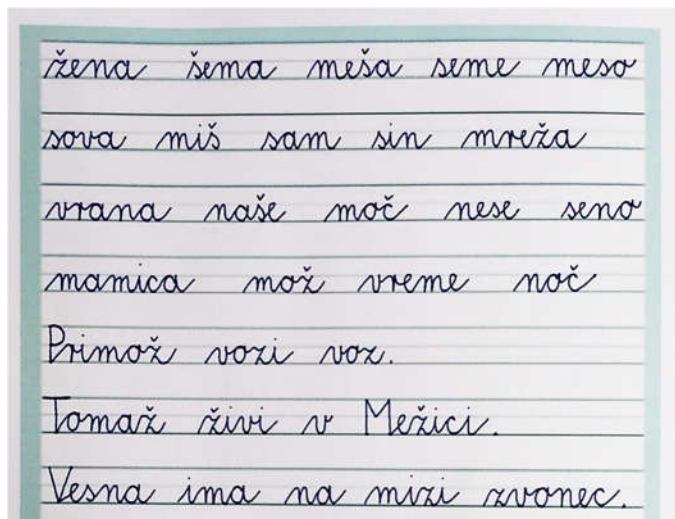 žena šema meša seme meso
sova miš sam sin mreža
vrana naše moč nese seno
mamica mož vreme noč
Primož vozi voz.
Tomaž živi v Mežici.
Vesna ima na mizi zvonec.